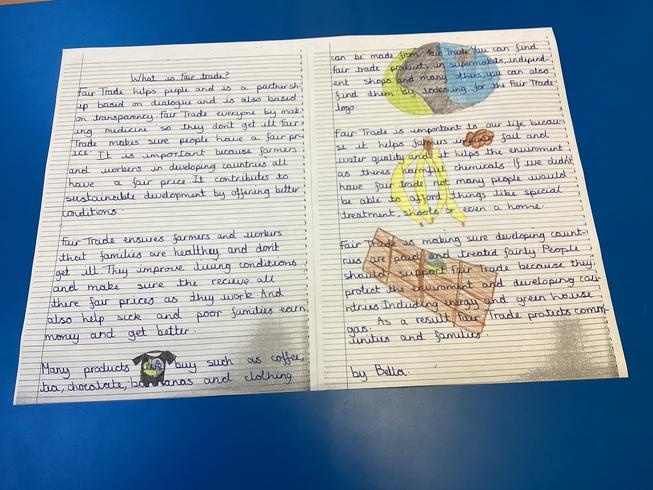 What is Fair trade?
Fair Trade helps people and is a partnersh-
ip based on dialogue and is also based
on transparency. Fair Trade everyone by mak-
ing medicine so they don't get ill. Fair
Trade makes sure people have a fair pr-
ice. It is important because farmers
and workers in developing countries all
have a fair price. It contributes to
sustainable development by offering better
conditions.
Fair Trade ensures farmers and workers
that families are healthey and don't
get ill. They improve living conditions
and make sure the recieve all
there fair prices as they work. And
also help sick and poor families earn
money and get better.
Many products buy such as coffee,
tea, chocolate, bananas and clothing
can be made from Fair Trade. You can find
Fair trade products in supermakets, independ-
ent shops and many others, you can also
find them by looking for the Fair Trade
logo.
Fair Trade is important to our life becau-
se it helps farmers soil and
water quality and it helps the enviroment
as theres harmful chemicals. If we didn't
have fair trade not many people would
be able to afford things like special
treatment, even a home.
Fair Trade is making sure developing count-
ries are paid and treated fairly. People
should support Fair Trade because they
protect the enviroment and developing cou-
ntries. Including energy and green house
gas. As a result Fair Trade protects comm-
unities and families.
by Bella.